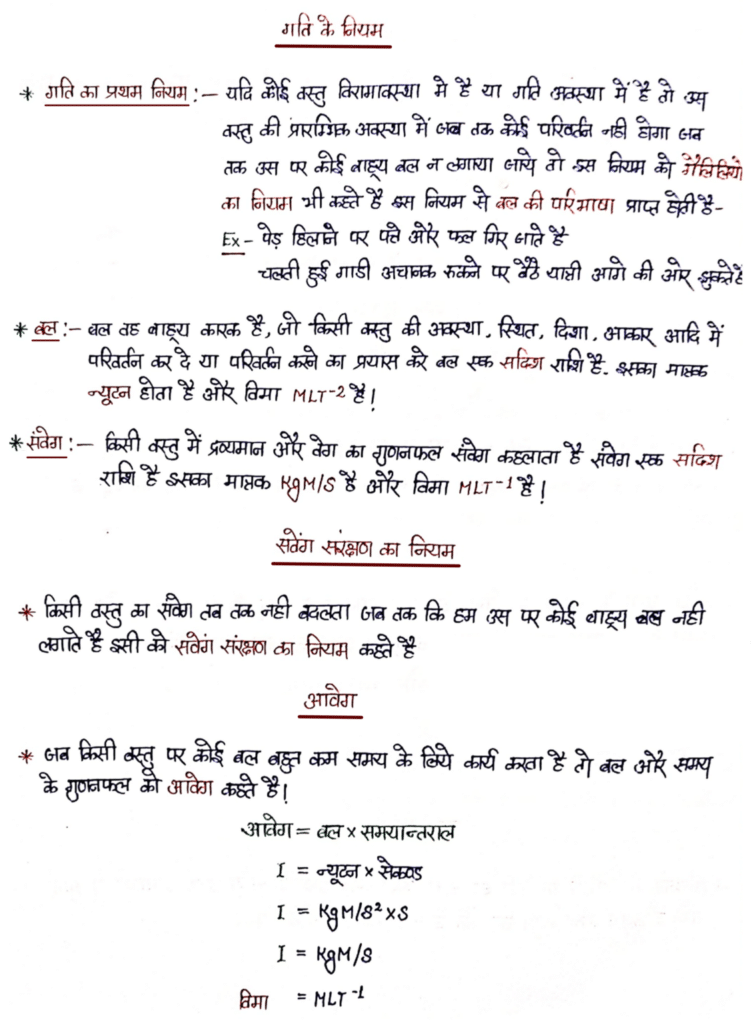 गति के नियम
* गति का प्रथम नियम :- यदि कोई वस्तु विरामावस्था मे है या गति अवस्था में है तो उस
वस्तु की प्रारम्भिक अवस्था में जब तक कोई परिवर्तन नही होगा जब
तक उस पर कोई बाह्य बल न लगाया जाये तो इस नियम को गैलिलियो
का नियम भी कहते है इस नियम से बल की परिभाषा प्राप्त होती है-
Ex- पेड़ हिलाने पर पते और फल गिर जाते है
चलती हुई गाडी अचानक रुकने पर बैठे यात्री आगे की ओर झुकते है
* बल :- बल वह बाह्य कारक है, जो किसी वस्तु की अवस्था, स्थित, दिशा, आकार आदि में
परिवर्तन कर दे या परिवर्तन करने का प्रयास करे बल एक सदिश राशि है. इसका मात्रक
न्यूटन होता है और विमा MLT-2 है!
* संवेग :- किसी वस्तु में द्रव्यमान और वेग का गुणनफल संवेग कहलाता है संवेग एक सदिश
राशि है इसका मात्रक KgM/S है और विमा MLT-1 है!
सवेंग संरक्षण का नियम
* किसी वस्तु का संवेग तब तक नही बदलता जब तक कि हम उस पर कोई बाह्य बल नही
लगाते है इसी को सवेंग संरक्षण का नियम कहते है
आवेग
* जब किसी वस्तु पर कोई बल बहुत कम समय के लिये कार्य करता है तो बल और समय
के गुणनफल को आवेग कहते है!
आवेग = बल × समयान्तराल
I = न्यूटन × सेकण्ड
I = KgM/S² × S
I = KgM/S
विमा = MLT⁻¹